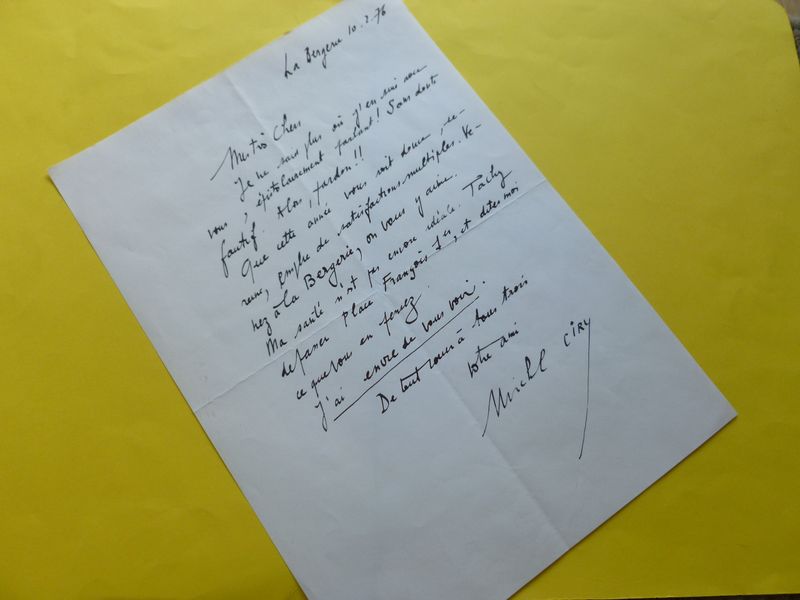 La Bergerie 10.2.76
Mes très Chers
Je ne sais plus où j'en suis avec
vous, épistolairement parlant! Sans doute
fautif. Alors, pardon!!
Que cette année vous soit douce, se-
reine, emplie de satisfactions multiples. Ve-
nez à La Bergerie, on vous y aime.
Ma santé n'est pas encore idéale. Tachez
de passer Place François 1er, et dites moi
ce que vous en pensez.
J'ai envie de vous voir.
De tout coeur à tous trois
votre ami
Michel CIRY